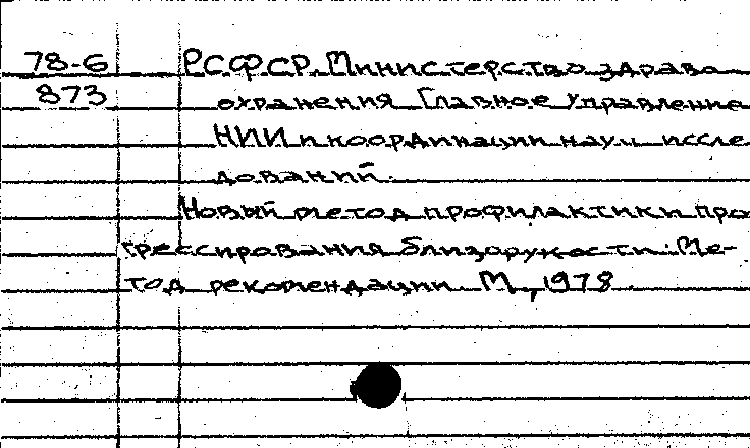 78-6 РСФСР. Министерство здраво
873 охранения Главное управление
НИИ и координации науч. иссле
дований.
Новый метод профилактики про
грессирования близорукости: Ме-
тод рекомендации М., 1978